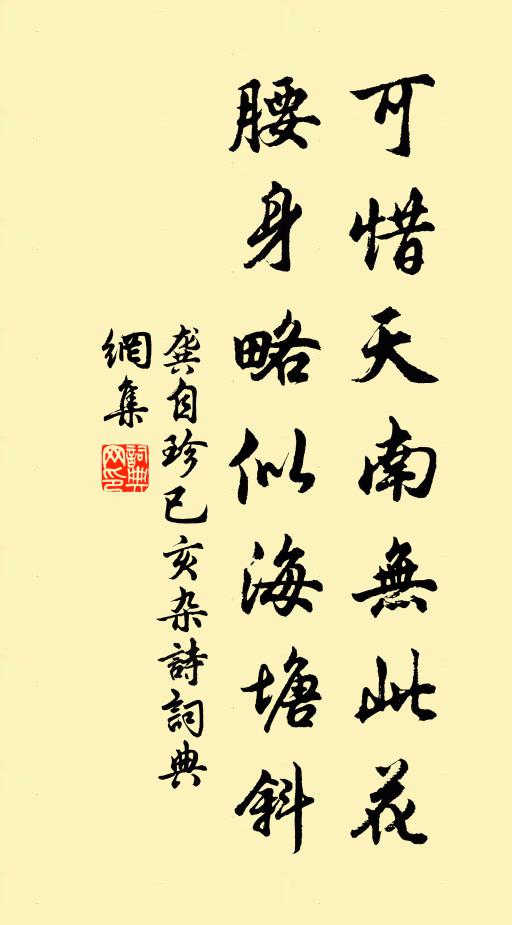 可惜天南無此花
腰身略似海塘斜
龔自珍已亥杂詩詞典
網集
詞典
网印